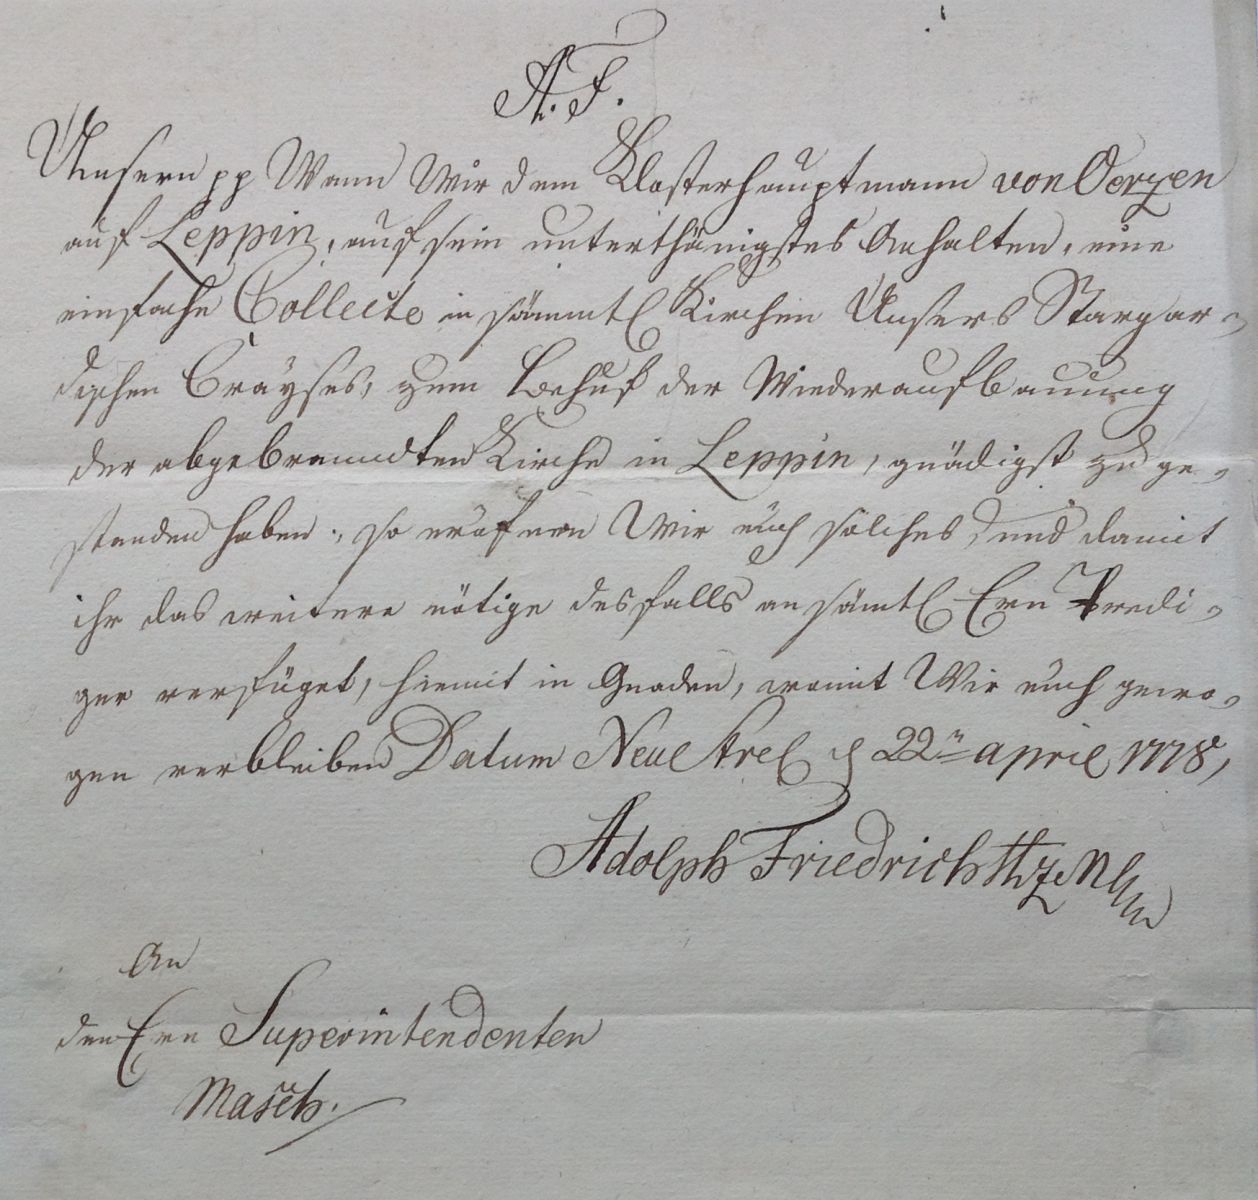 A. F.
Unsern pp Wann Wir dem Klosterhauptmann von Oerzen
auf Leppin, auf sein unterthänigstes Anhalten, eine
einfache Collecte in sämmtl Kirchen Unsers Stargar-
dischen Crayses, zum Behuf der Wiederaufbauung
der abgebranndten Kirche in Leppin, gnädigst zu ge-
standen haben; so eröfnen Wir euch solches, und damit
ihr das weitere nötige desfalls an sämtl Ern Predi-
ger verfüget, hiemit in Gnaden, womit Wir euch gewo-
gen verbleiben Datum Neue Strel d 22n april 1778,
Adolph Friedrich HzM
An
den Ern Superintendenten
Masch.